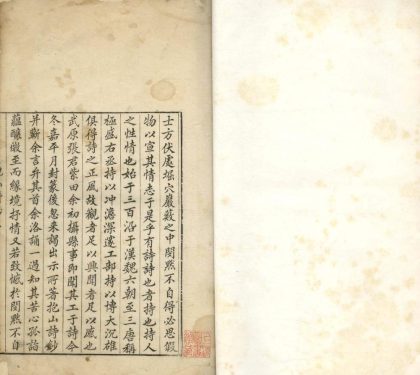 士方伏處堀穴巖薮之中閔默不自得必思假
物以宣其情志于是乎有詩詩也者持也持人
之性情也始于三百沿于漢魏六朝至三唐稱
極盛右丞持以冲澹深遠工部持以博大沉雄
俱得詩之正風故觀者足以興聞者足以感也
武原張君紫田余初攝縣事即聞其工于詩今
冬嘉平月封篆後忽来謁出示所著抱山詩鈔
并蘄余言弁其首余洛誦一過知其苦心孤詣
蘊釀緻至而緣境抒情又若致憾於閔默不自